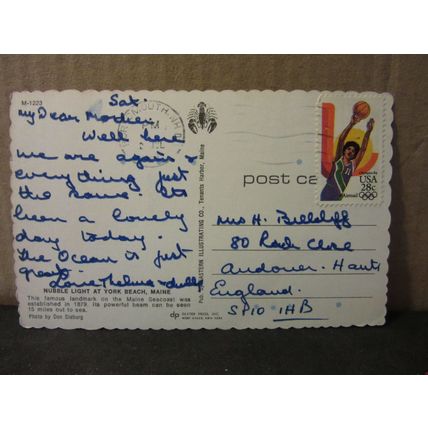 M-1223
Sat.
My Dear Mother.
Well here
we are again &
everything just
the same. Its
been a lovely
day today.
The Ocean is just
great.
Love Thelma +
NUBBLE LIGHT AT YORK BEACH, MAINE
This famous landmark on the Maine Seacoast was
established in 1879. Its powerful beam can be seen
15 miles out to sea.
Photo by Don Sieburg
PORTSMOUTH, NH
Pub. by EASTERN ILLUSTRATING CO., Tenants Harbor, Maine
dp DEXTER PRESS, INC.
WEST NYACK, NEW YORK
post ca
USA
28c
Airmail
Mrs H.
80 Close
Andover. Hants
England.
SP10 1HB